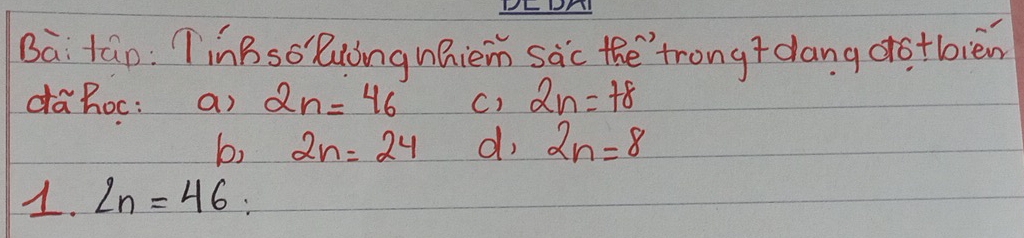 ĐỀ BÀI
Bài tập: Tính số lượng nhiễm sắc thể trong 7 dạng đột biến
đã học: a) 2n = 46 c) 2n = 78
b) 2n = 24 d) 2n = 8
1. 2n = 46: